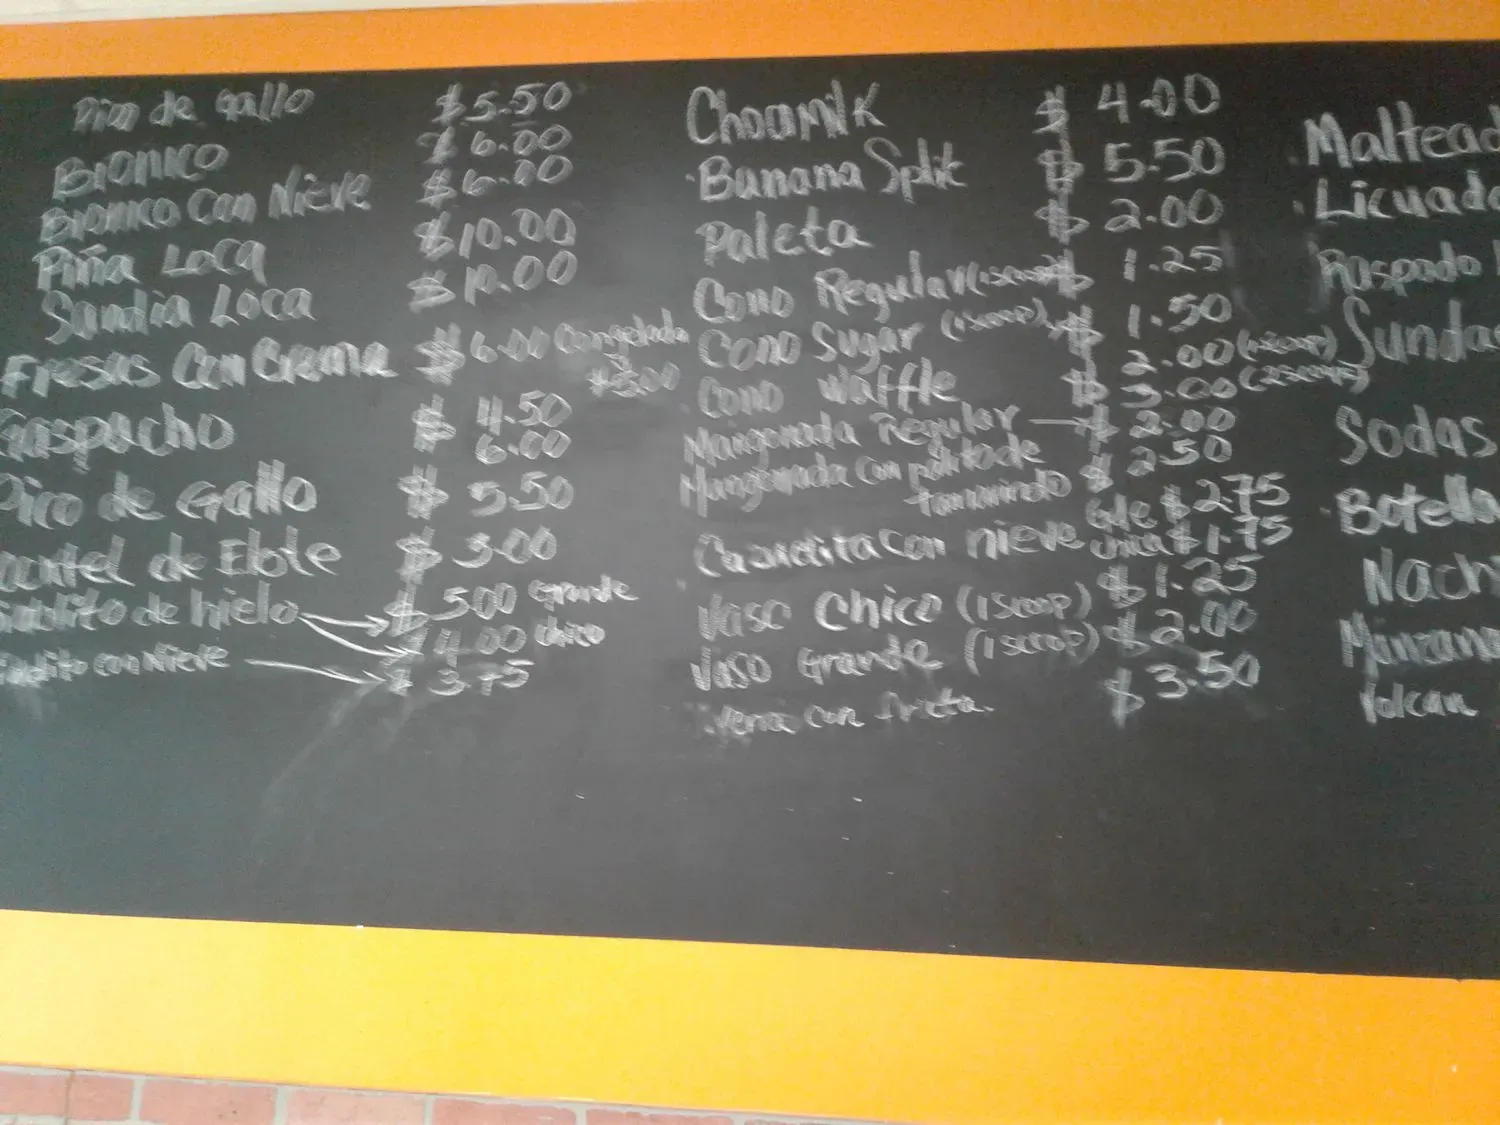 Pico de Gallo $5.50
Bionico $6.00
Bionico Con Nieve $6.00
Piña Loca $10.00
Sandia Loca $10.00
Fresas Con Crema $6.00 Congelada
$5.00
Gaspacho $4.50
6.00
Pico de Gallo $5.50
de Elote $3.00
de hielo $5.00 grande
$4.00 chico
con Nieve $3.75
Chocomilk $4.00
Banana Split $5.50
Paleta $2.00
Cono Regular (1 scoop) $1.25
Cono Sugar (1 scoop) $1.50
Cono Waffle $2.00 (1 scoop)
$3.00 (2 scoops)
Mangonada Regular $2.00
Mangonada con palito de $2.50
tamarindo
Gde $2.75
Canastita con nieve chica $1.75
Vaso Chico (1 scoop) $1.25
Vaso Grande (1 scoop) $2.00
con fruta. $3.50
Maltead
Licuado
Raspado
Sundae
Sodas
Botella
Nach
Manzana
Volcan